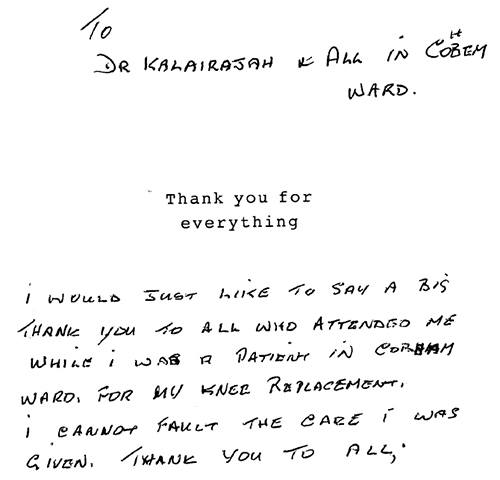 To
Dr Kalairajah & All in Cobhem
Ward.
Thank you for
everything
i would just like to say a big
thank you to all who attended me
while i was a patient in Cobham
ward. for my knee replacement.
i cannot fault the care i was
given. Thank you to all,